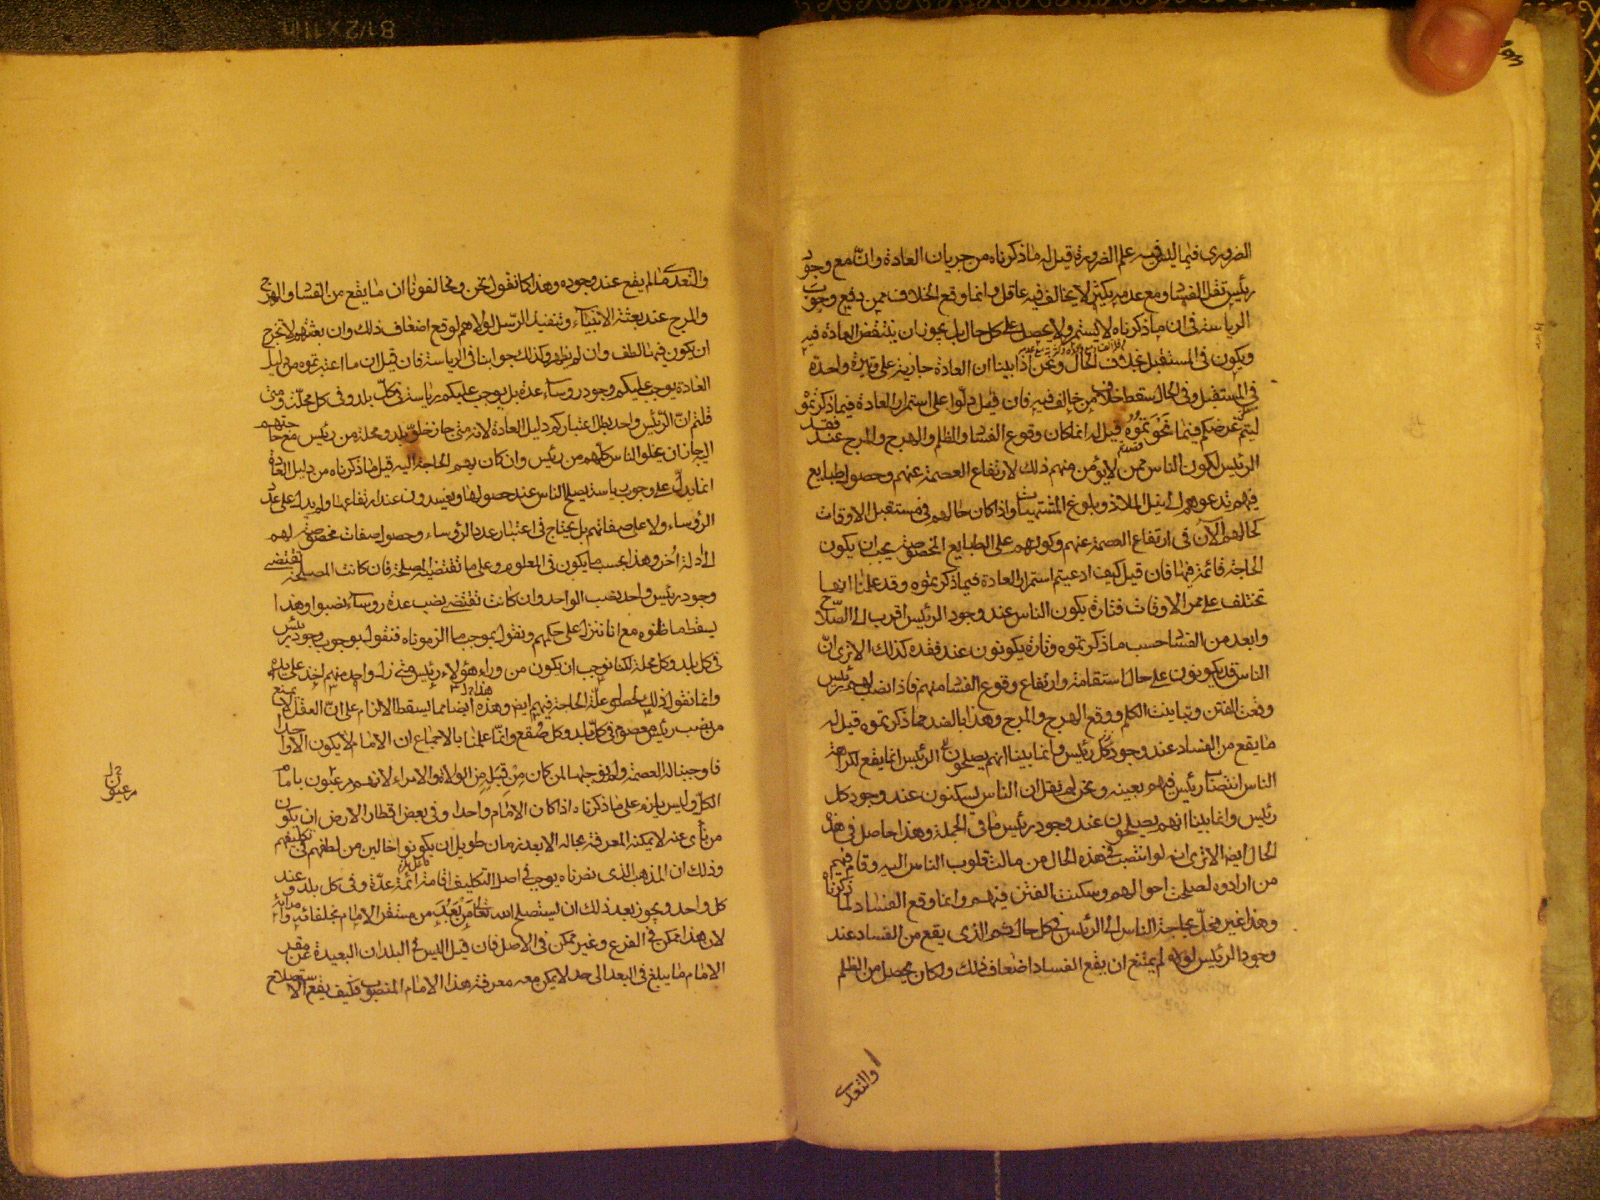 الضروري فيما ليس فيه علم الضرورة قيل له ما ذكرناه من جريان العادة وان مع وجود
رئيس تقل الفساد ومع عدمه يكثر لا يخالف فيه عاقل وانما وقع الخلاف ممن دفع وجوب
الرياسة في ان ما ذكرناه لا يستمر ولا يحصل على كل حال بل يجوز ان ينتقض العادة فيه
ويكون في المستقبل بخلاف الحال ونحن اذا بينا ان العادة جارية على وتيرة واحدة
في المستقبل وفي الحال سقط خلاف من خالف فيه فان قيل دلّوا على استمرار العادة فيما ذكرتموه
ليتم غرضكم فيما نحوتموه قيل له انما كان وقوع الفساد والظلم والهرج والمرج عند فقد
الرئيس لكون الناس ممن لا يؤمن منهم ذلك لارتفاع العصمة عنهم وحصول طبايع
فيهم تدعوهم الى نيل الملاذ وبلوغ المشتهيات واذا كان حالهم في مستقبل الاوقات
كحالهم الآن في ارتفاع العصمة عنهم وكونهم على الطبايع المخصوصة يجب ان يكون
الحاجة قائمة فيها فان قيل كيف ادعيتم استمرار العادة فيما ذكرتموه وقد علمنا انها
تختلف على ممر الاوقات فتارة يكون الناس عند وجود الرئيس اقرب الى الصلاح
وابعد من الفساد حسب ما ذكرتموه وتارة يكونون عند فقده كذلك الا ترى انّ
الناس قد يكونون على حال استقامة وارتفاع وقوع الفساد منهم فاذا نصب لهم رئيس
وقعت الفتن وتباينت الكلم ووقع الهرج والمرج وهذا بالضد مما ذكرتموه قيل له
ما يقع من الفساد عند وجود كل رئيس وانما بينا انهم يصلحون الرئيس انما يقع لكراهة
الناس انتصاب رئيس فيهم بعينه ونحن لم نقل ان الناس يسكنون عند وجود كل
رئيس وانما بينا انهم يصلحون عند وجود رئيس ما في الجملة وهذا حاصل في هذه
الحال ايضا الا ترى انه لو انتصب في هذه الحال من مالت قلوب الناس اليه وقام فيهم
من ارادوه لصلحت احوالهم وسكنت الفتن فيهم وانما وقع الفساد لما ذكرناه
وهذا غير مخلّ بحاجة الناس الى الرئيس في كل حال ثم الذي يقع من الفساد عند
وجود الرئيس لولاه لم يمتنع ان يقع الفساد اضعاف ذلك ولكان يحصل من الظلم
والتعدي
والتعدي ما لم يقع عند وجوده وهذا كما نقول نحن ومخالفونا ان ما يقع من الفساد والهرج
والمرج عند بعثة الانبياء وتنفيذ الرسل لولاهم لوقع اضعاف ذلك وان بعثتهم لا تخرج
ان يكون فيها لطف وان لم يظهر وكذلك جوابنا في الرياسة فان قيل ان ما اعتبرتموه من دليل
العادة يوجب عليكم وجود رؤساء عدة بل يوجب عليكم رياسة في كلّ بلد وفي كل محلّة ومتى
قلتم انّ الرئيس واحد بطل اعتباركم دليل العادة لانه متى جاز خلوّ بلد ومحلة من رئيس مع حاجتهم
اليه جاز ان يخلوا الناس كلّهم من رئيس وان كان بهم الحاجة اليه قيل ما ذكرناه من دليل العادة
انما يدلّ على وجوب رياسة يصلح الناس عند حصولها ويفسدون عند ارتفاعها ولم يدل على عدد
الرؤساء ولا على صفاتهم بل يحتاج في اعتبار عدد الرؤساء وحصول صفات مخصوصة لهم
الى ادلة اُخر وهذا بحسب ما يكون في المعلوم وعلى ما تقتضيه المصلحة فان كانت المصلحة تقتضي
وجود رئيس واحد نصب الواحد وان كانت تقتضي نصب عدة رؤساء نصبوا وهذا
يسقط ما ظنوه مع انا ننزل على حكمهم ونقول بموجب ما الزموناه فنقول بوجوب وجود رئيس
في كل بلد وكل محلة لكنا نوجب ان يكون من وراء هؤلاء رئيس متى زل واحد منهم اخذ على يده
وانما نقول ذلك لحصول علة الحاجة فيهم ايضا وهذه ايضا مما يسقط الالزام على انّ العقل لا يمنع
من نصب رئيس معصوم في كل بلد وكل صُقع وانما علمنا بالاجماع ان الامام لا يكون الا واحدا
فاوجبنا له العصمة ولم نوجبها لمن كان مِن قِبله مِن الولاة والامراء لانهم مرعيّون بامام
الكل وليس يلزم على ما ذكرناه اذا كان الامام واحدا وفي بعض اقطار الارض ان يكون
من نأى عنه لا يمكنه المعرفة بحاله الا بعد زمان طويل ان يكونوا خالين من لطفهم في تكليفهم
وذلك ان المذهب الذي نصرناه يوجب في اصل التكليف اقامة ائمة عدّة وفي كل بلد وعند
كل واحد ويجوز بعد ذلك ان يستصلح الله تعالى مَن بَعُدَ من مستقر الامام بخلفائه وامرائه
لان هذا ممكن في الفرع وغير ممكن في الاصل فان قيل اليس في البلدان البعيدة عن مقر
الامام ما يبلغ في البعد الى حد لا يمكن معه معرفة هذا الامام المنصوب فكيف يقع الاستصلاح
مرعيون